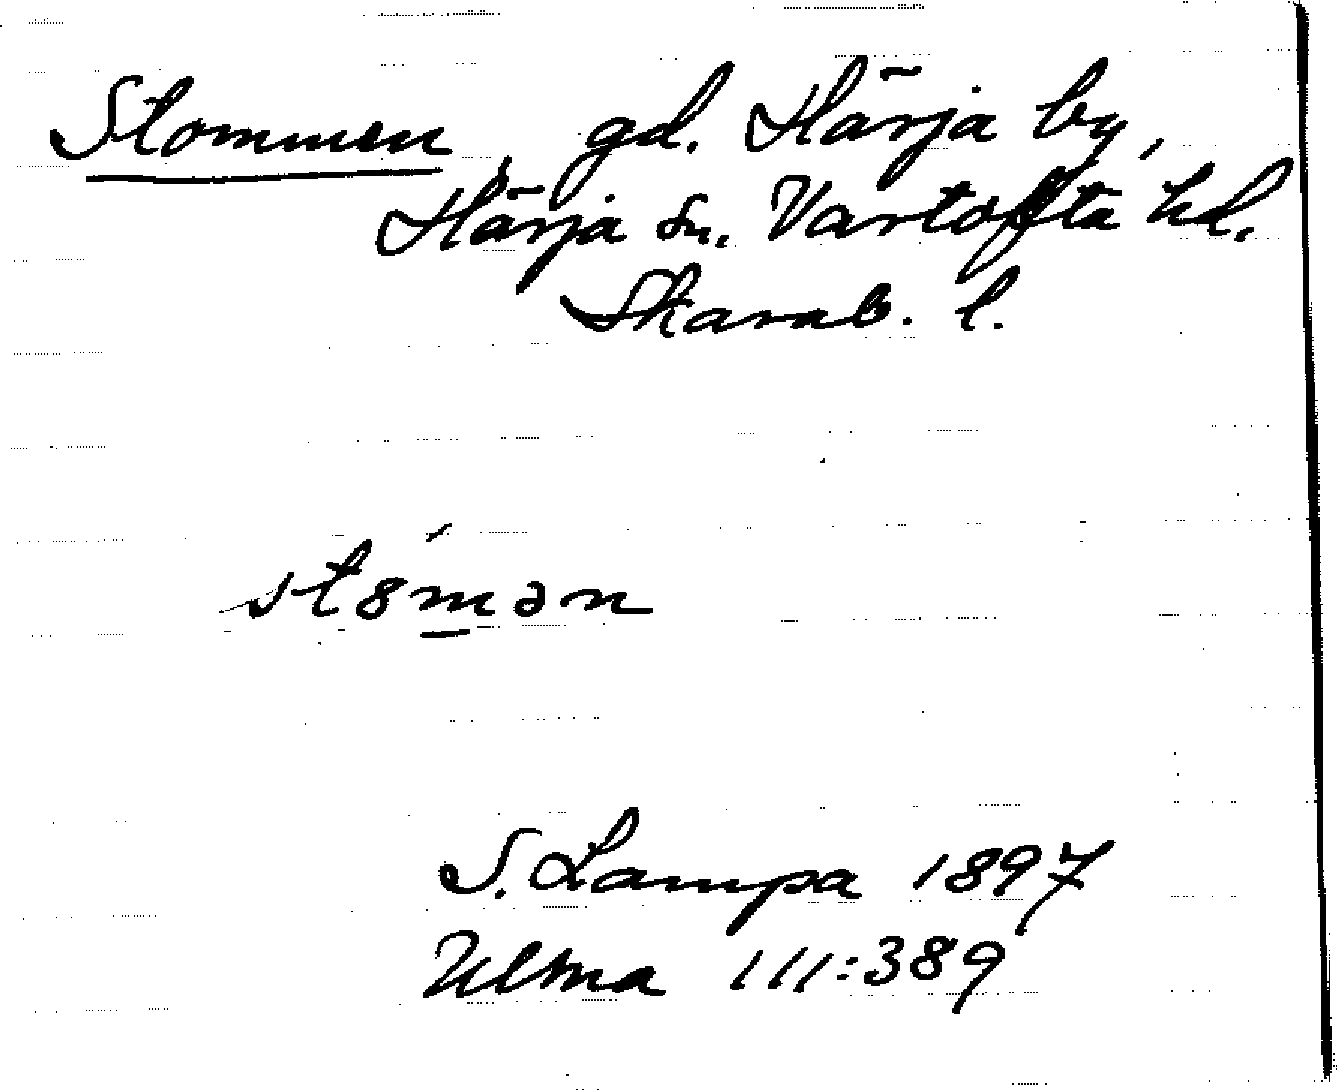 Stommen, gd. Härja by,
Härja sn, Vartofta hd.
Skarab. l.
st8́mən
S. Lampa 1897
Ulma 111:389